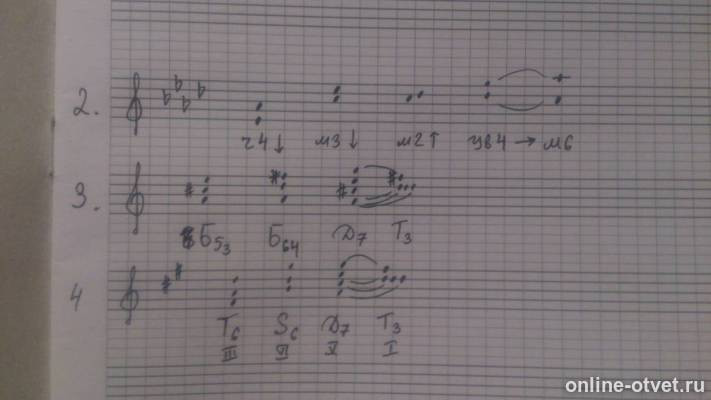 2.
ч4↓ м3↓ м2↑ ув4 → м6
3.
Б53 Б64 Д7 Т3
4
Т6 S6 Д7 Т3
III VI V I
online-otvet.ru